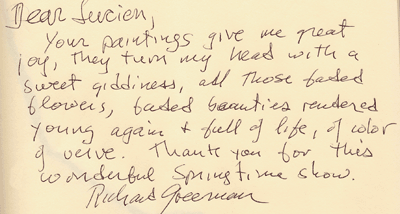 Dear Lucien,
Your paintings give me great
joy, they turn my head with a
sweet giddiness, all those faded
flowers, faded beauties rendered
young again & full of life, of color
of verve. Thank you for this
wonderful Springtime show.
Richard Greeman